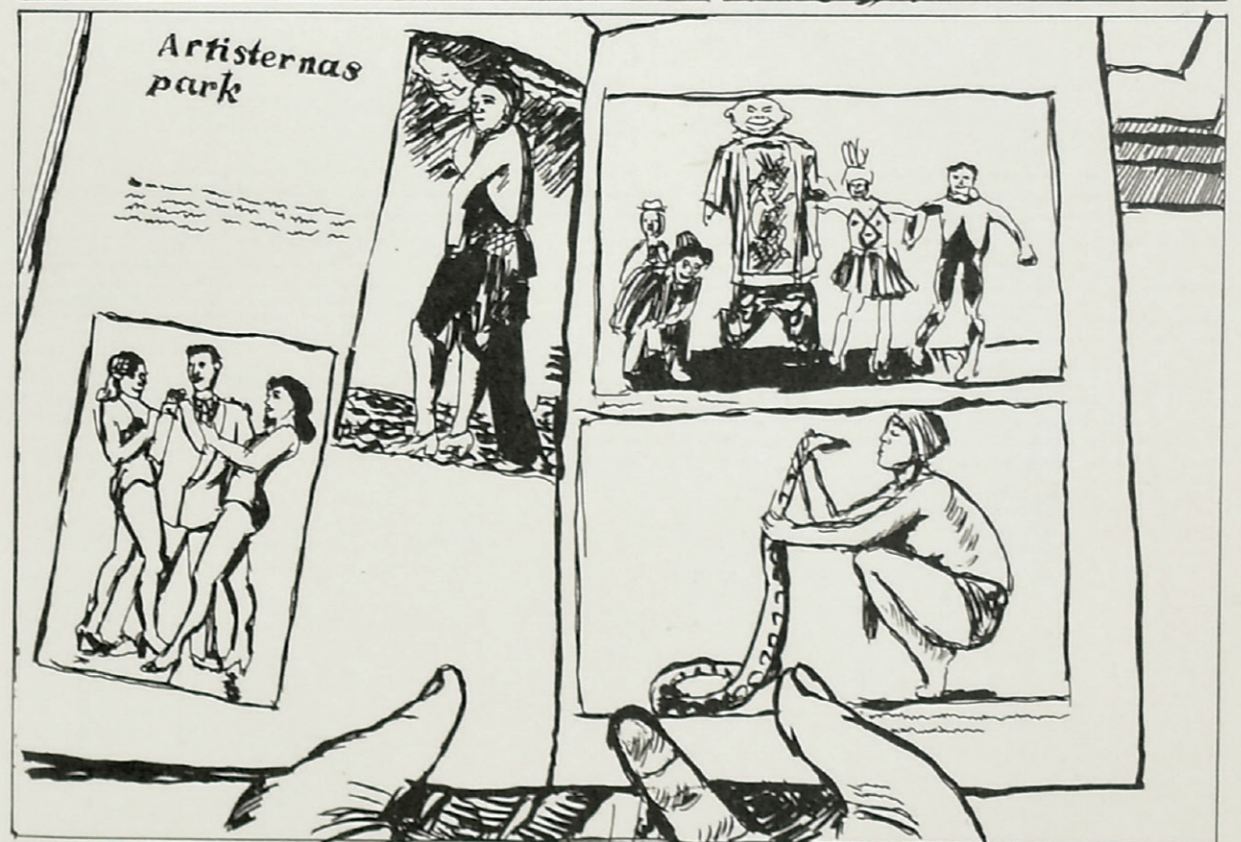 Artisternas
park